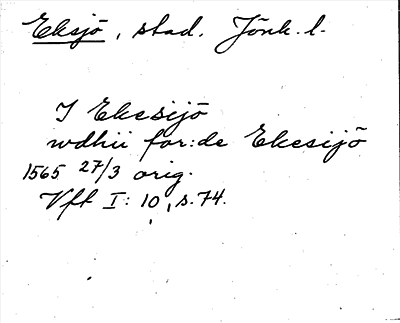 Eksjö, stad. Jönk. l.
I Ekesijö
wdhii for:de Ekesijö
1565 27/3 orig.
Vft I: 10, s. 74.